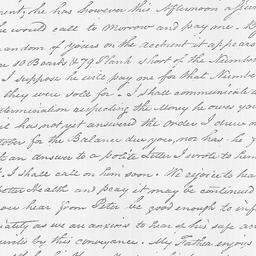 ment, he has however this Afternoon assur
he would call to Morrow and pay me. B
andom of yours on the account it appears
re 10 Boards & 79 Plank short of the Number
I suppose he will pay me for that Number
they were sold for. I shall communicate
determination respecting the Money he owes you
it has not yet answered the Order I drew o
ctober for the Balance due you, nor has he
t an answer to a polite Letter I wrote to him
I shall call on him soon. We rejoice to hear
better Health and pray it may be continued
ou hear from Peter be good enough to inf
iately as we are anxious to hear of his safe
unts by this conveyance. My Father enjoys